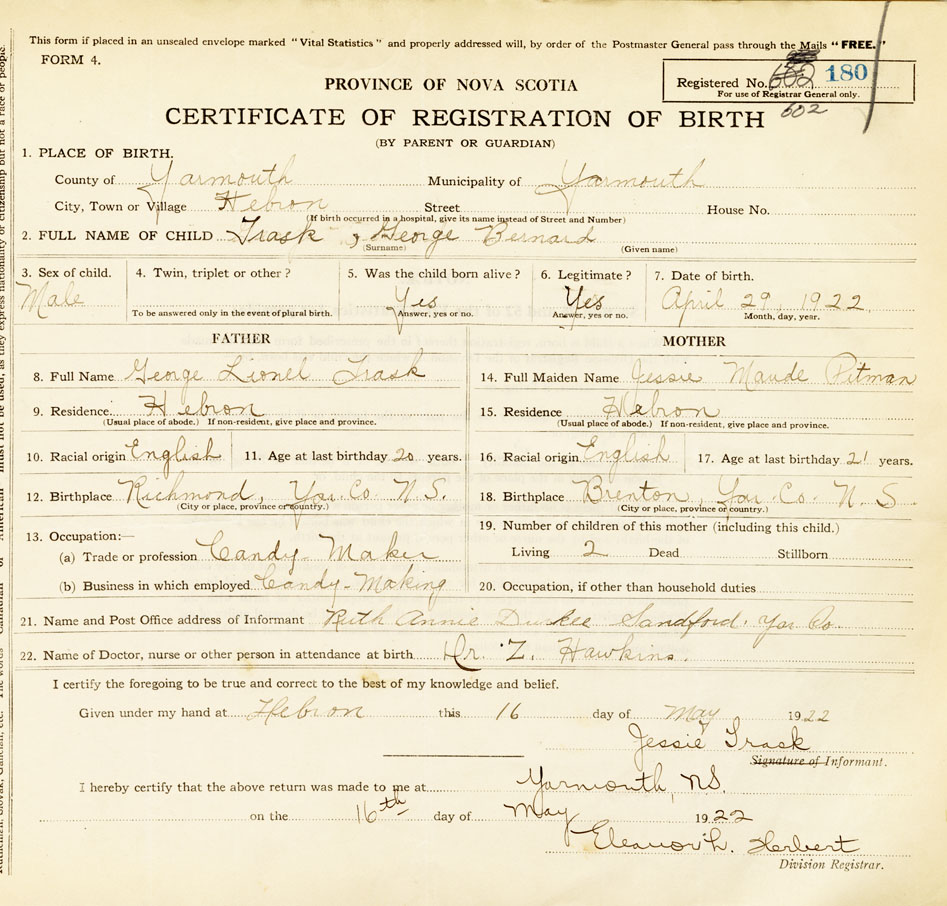 This form if placed in an unsealed envelope marked "Vital Statistics" and properly addressed will, by order of the Postmaster General pass through the Mails "FREE."
FORM 4.
Registered No. 602 180
For use of Registrar General only.
602
PROVINCE OF NOVA SCOTIA
CERTIFICATE OF REGISTRATION OF BIRTH
(BY PARENT OR GUARDIAN)
1. PLACE OF BIRTH.
County of Yarmouth Municipality of Yarmouth
City, Town or Village Hebron Street House No.
(If birth occurred in a hospital, give its name instead of Street and Number)
2. FULL NAME OF CHILD Trask, George Bernard
(Surname) (Given name)
3. Sex of child. 4. Twin, triplet or other? 5. Was the child born alive? 6. Legitimate? 7. Date of birth.
Male Yes Yes April 29, 1922
To be answered only in the event of plural birth. Answer, yes or no. Answer, yes or no. Month, day, year.
FATHER
8. Full Name George Lionel Trask
9. Residence Hebron
(Usual place of abode.) If non-resident, give place and province.
10. Racial origin English 11. Age at last birthday 20 years.
12. Birthplace Richmond, Yar. Co. N. S.
(City or place, province or country.)
13. Occupation:—
(a) Trade or profession Candy-Maker
(b) Business in which employed Candy-Making
MOTHER
14. Full Maiden Name Jessie Maude Pitman
15. Residence Hebron
(Usual place of abode.) If non-resident, give place and province.
16. Racial origin English 17. Age at last birthday 21 years.
18. Birthplace Brenton, Yar. Co. N. S
(City or place, province or country.)
19. Number of children of this mother (including this child.)
Living 2 Dead Stillborn
20. Occupation, if other than household duties
21. Name and Post Office address of Informant Ruth Annie Durkee Sandford, Yar Co.
22. Name of Doctor, nurse or other person in attendance at birth Dr. Z. Hawkins.
I certify the foregoing to be true and correct to the best of my knowledge and belief.
Given under my hand at Hebron this 16 day of May 1922
Jessie Trask
Signature of Informant.
I hereby certify that the above return was made to me at Yarmouth, N.S.
on the 16th day of May 1922
Eleanor h. Herbert
Division Registrar.